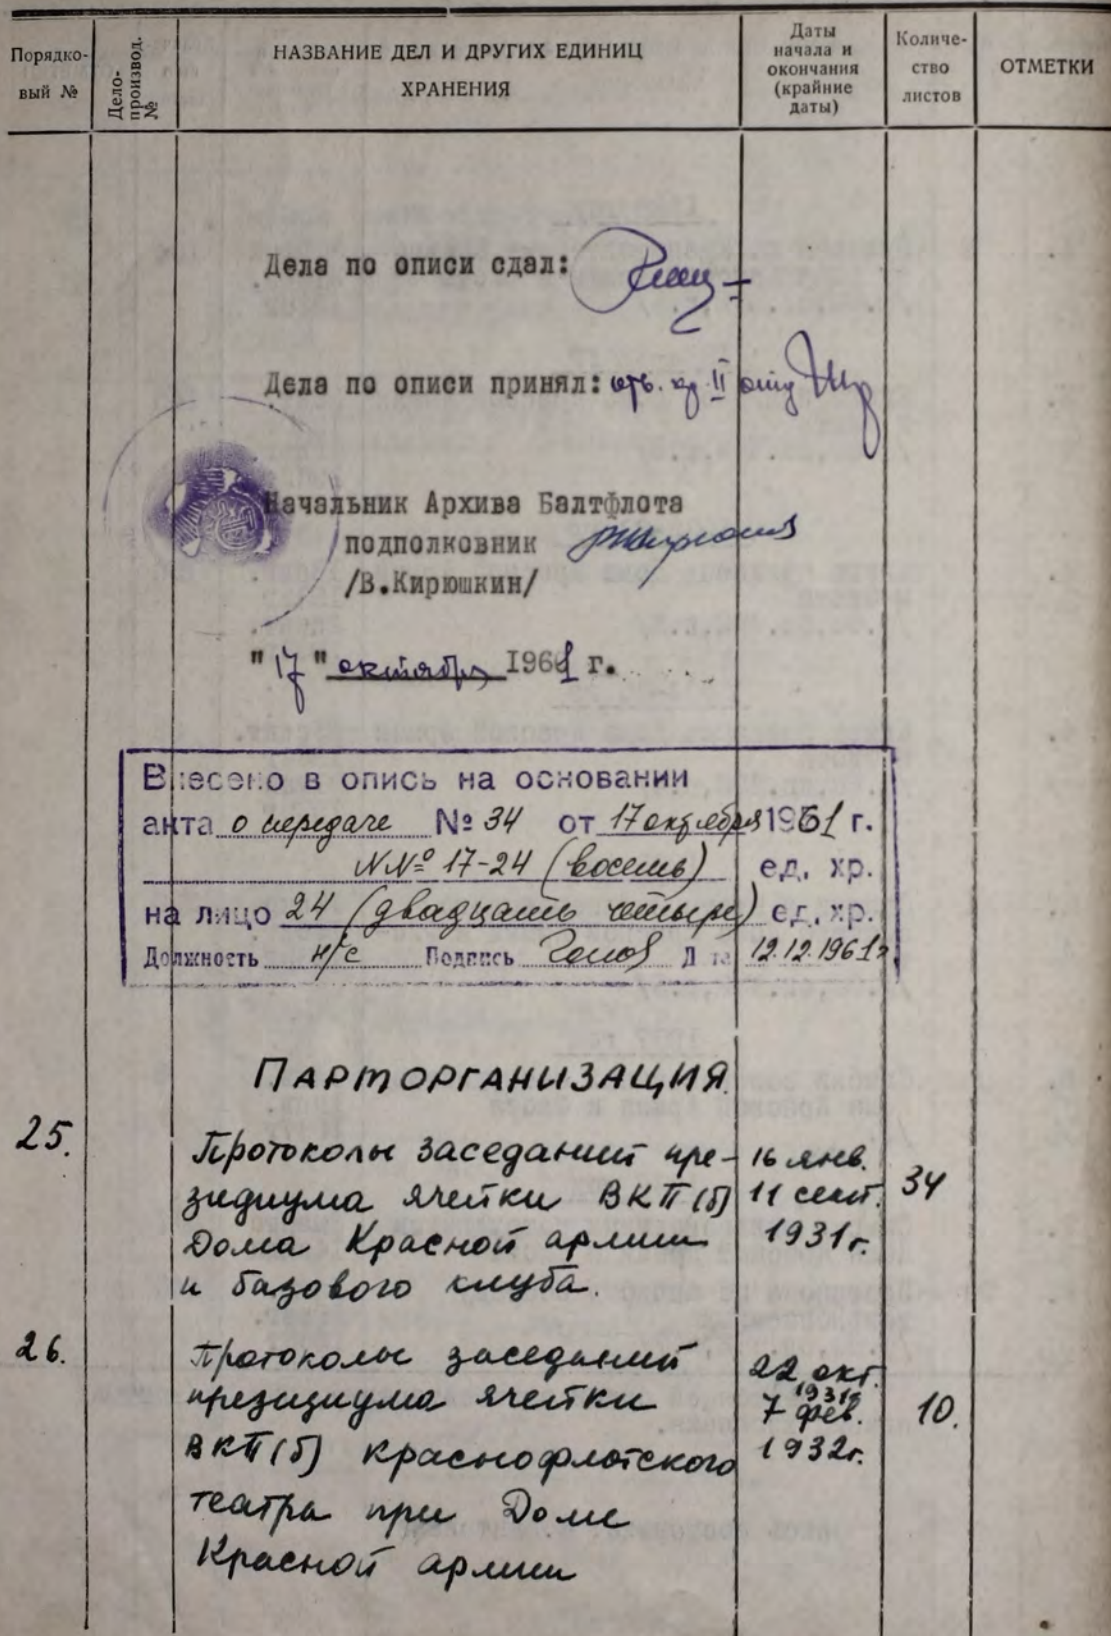 Порядко-
вый №
Дело-
производ.
№
НАЗВАНИЕ ДЕЛ И ДРУГИХ ЕДИНИЦ
ХРАНЕНИЯ
Даты
начала и
окончания
(крайние
даты)
Количе-
ство
листов
ОТМЕТКИ
Дела по описи сдал:
Дела по описи принял:
Начальник Архива Балтфлота
подполковник
/В.Кирюшкин/
"17" октября 1961 г.
Внесено в опись на основании
акта о передаче № 34 от 17 октября 1961 г.
№№ 17-24 (восемь) ед. хр.
на лицо 24 (двадцать четыре) ед. хр.
Должность н/с Подпись Дата 12.12.1961г
ПАРТОРГАНИЗАЦИЯ.
25.
Протоколы заседаний пре-
зидиума ячейки ВКП(б)
Дома Красной армии
и базового клуба.
16 янв.
11 сент.
1931г.
34
26.
Протоколы заседаний
президиума ячейки
ВКП(б) краснофлотского
театра при Доме
Красной армии
22 окт.
1931г
7 фев.
1932г.
10.